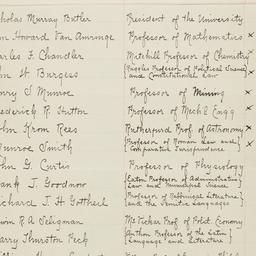 cholas Murray Butler President of the University
n Howard Van Amringe Professor of Mathematics ×
arles F. Chandler Mitchill Professor of Chemistry ×
hn W. Burgess Ruggles Professor of Political Science and Constitutional Law
enry S Munroe Professor of Mining ×
ederick R. Hutton Professor of Mech'l Eng'g ×
ohn Krom Rees Rutherfurd Prof. of Astronomy ×
unroe Smith Professor of Roman Law and Comparative Jurisprudence ×
hn G. Curtis Professor of Physiology
ank J. Goodnow Eaton Professor of Administrative Law and Municipal Science
ichard J H Gottheil Professor of Rabbinical Literature and the Semitic Languages
win R. A. Seligman McVickar Prof of Polit. Economy
arry Thurston Peck Anthon Professor of the Latin Language and Literature